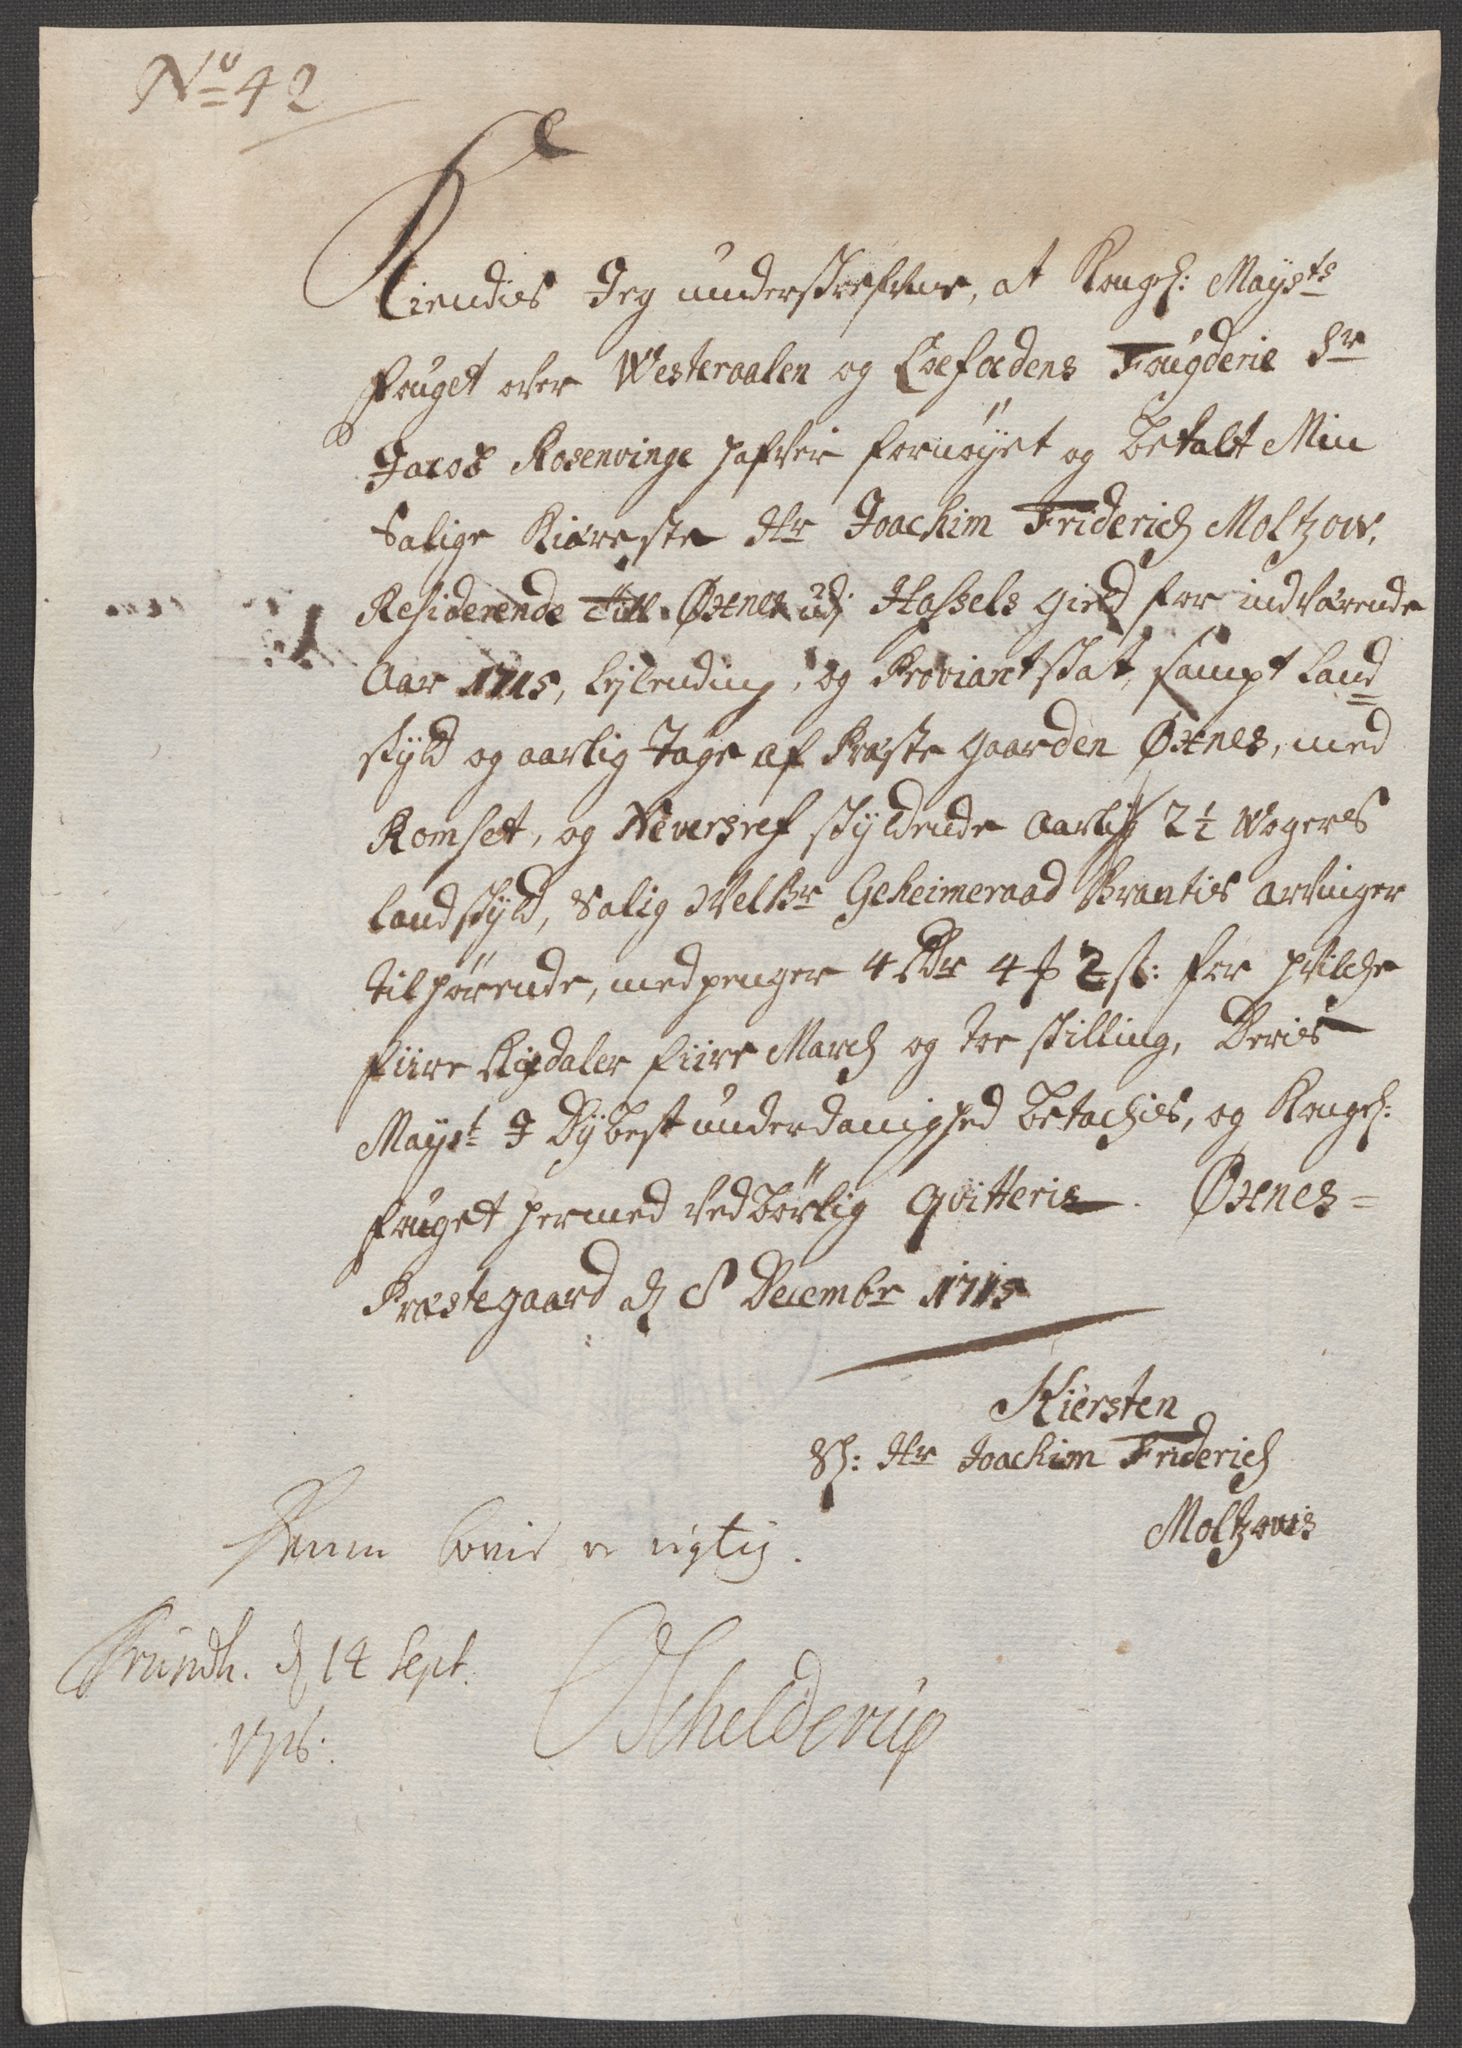 No 42
Kiendis Jeg underskrefvne, at Kongel: Mayts
fouget over Westeraalen og Loefodens Fougderie Sr
Jacob Rosenvinge hafver fornøyet og betalt Min
Salige Kiæreste Hr Joachim Friderich Moltzow,
Residerende Till Øxnes udj Hassels gield for indværende
Aar 1715, Lejlending, og Proviant skat, sampt Land=
skyld og aarlig Tage af Præste gaarden Øxnes, med
Romset, og Neversref skyldende Aarlig 2½ Wogers
Landskyld, Salig Welbr Geheimeraad Brantis arvinger
tilhørende, med penger 4 Rdr 4 ꝑ 2 s: for hvilche
fiire Rigdaler fiire March og toe skilling, Deris
Mayst I Dybest underdanighed betachis, og Kongel:
fouget hermed vedbørlig Qvitteris. Øxnes=
Præstegaard d 8 Decembr 1715
Kiersten
Sl: Hr Joachim Friderich
Moltzovis
Denne Copie er rigtig.
Trundh. d 14 Sept.
1716.
OSchelderup